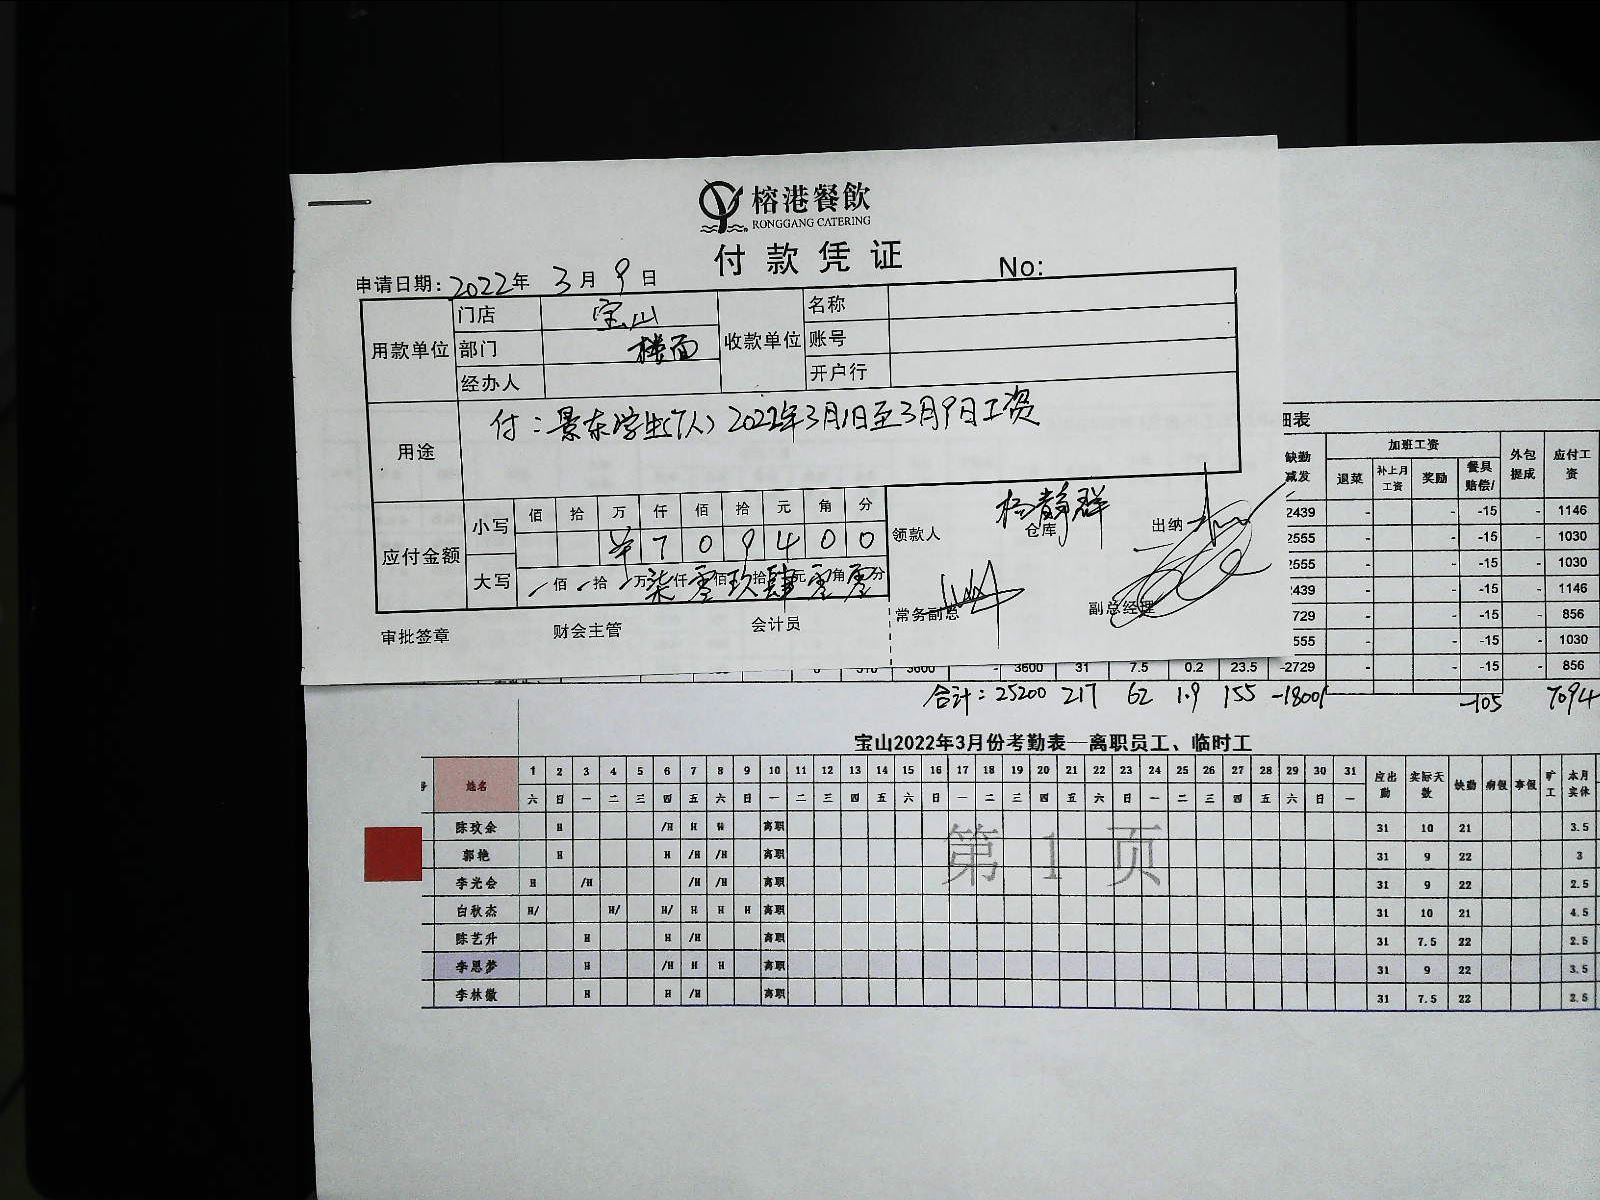 榕港餐飲
RONGGANG CATERING
付款凭证
申请日期：2022年 3月 9日 No:
用款单位 门店 宝山 收款单位 名称
部门 楼面 账号
经办人 开户行
用途 付：景东学生(7人) 2022年3月1日至3月9日工资
应付金额 小写 佰 拾 万 仟 佰 拾 元 角 分
¥ 7 0 9 4 0 0
大写 佰 拾 万 柒仟 零佰 玖拾 肆元 零角 零分
领款人 杨静群 仓库 出纳
常务副总 副总经理
审批签章 财会主管 会计员
细表
缺勤减发 加班工资 外包提成 应付工资
退菜 补上月工资 奖励 餐具赔偿/
2439 - - -15 - 1146
2555 - - -15 - 1030
2555 - - -15 - 1030
2439 - - -15 - 1146
729 - - -15 - 856
555 - - -15 - 1030
3600 - 3600 31 7.5 0.2 23.5 -2729 - - -15 - 856
合计：25200 217 62 1.9 155 -18001 -105 7094
宝山2022年3月份考勤表—离职员工、临时工
姓名 1 2 3 4 5 6 7 8 9 10 11 12 13 14 15 16 17 18 19 20 21 22 23 24 25 26 27 28 29 30 31 应出勤 实际天数 缺勤 病假 事假 旷工 本月实休
六 日 一 二 三 四 五 六 日 一 二 三 四 五 六 日 一 二 三 四 五 六 日 一 二 三 四 五 六 日 一
陈玟余 H /H H H 离职 31 10 21 3.5
郭艳 H H /H /H 离职 31 9 22 3
李光会 H /H /H /H 离职 31 9 22 2.5
白秋杰 H/ H/ H/ H H H 离职 31 10 21 4.5
陈艺升 H H /H 离职 31 7.5 22 2.5
李恩梦 H /H H H 离职 31 9 22 3.5
李林徽 H H /H 离职 31 7.5 22 2.5
第 1 页